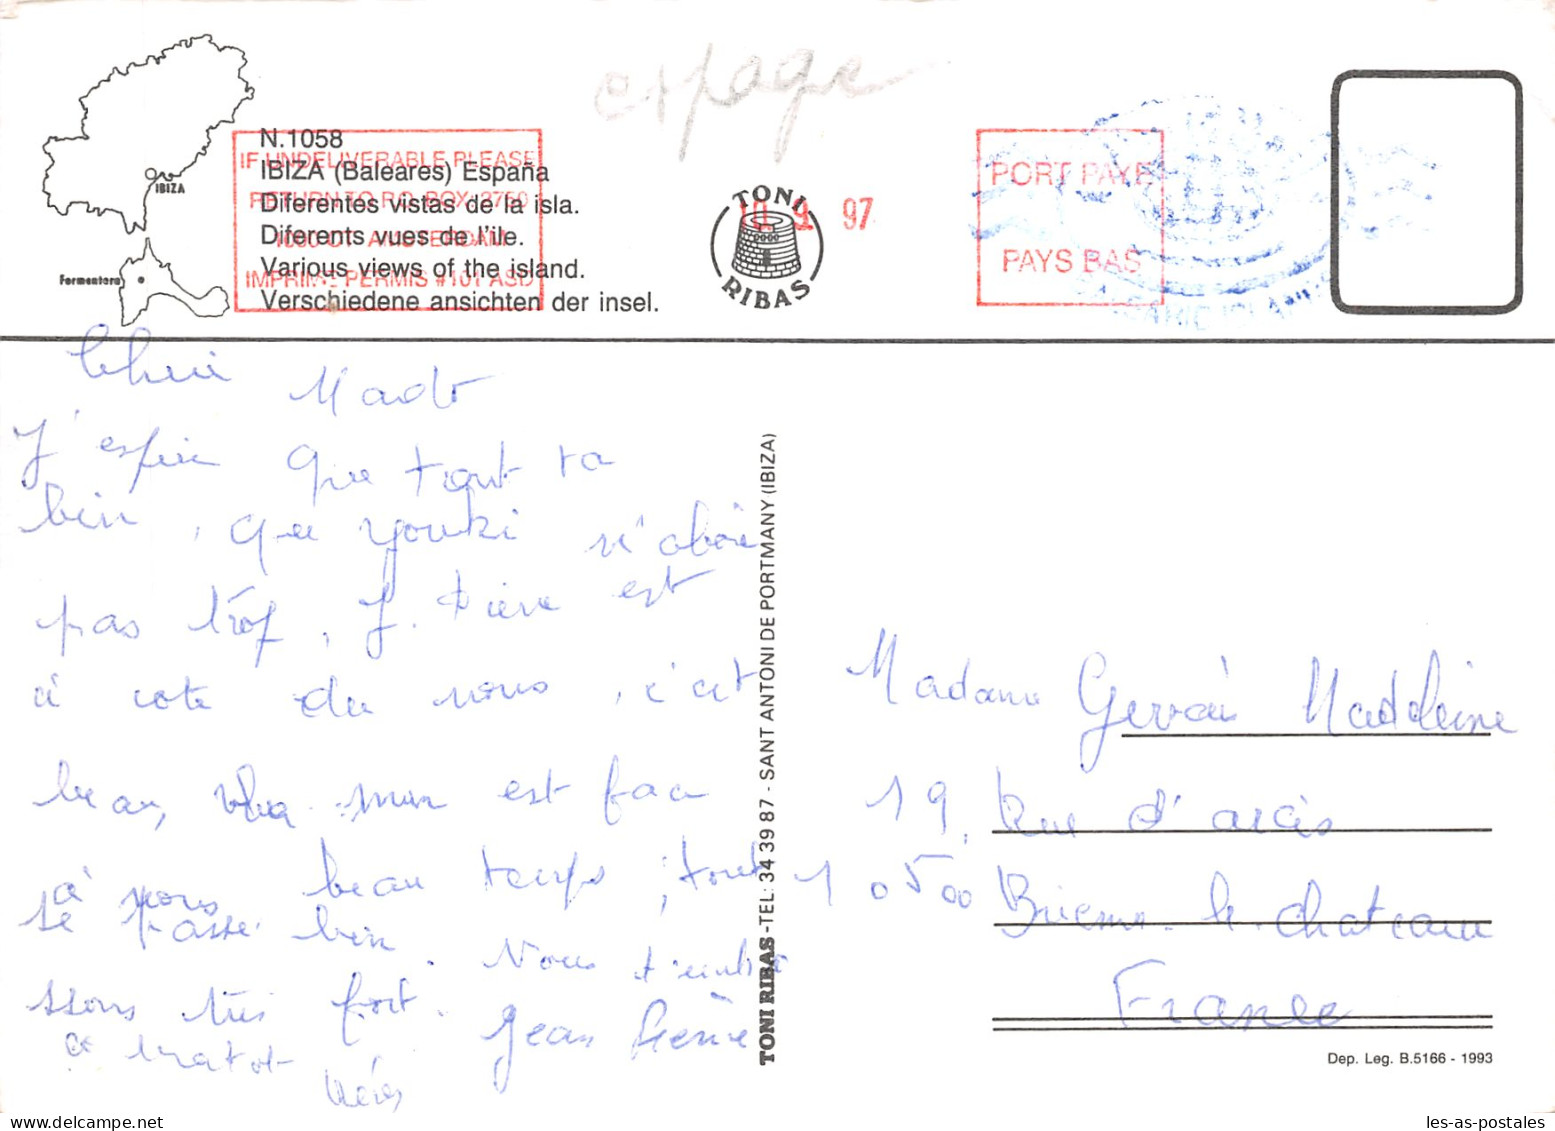 espagne
N.1058
IBIZA (Baleares) España
Diferentes vistas de la isla.
Diferents vues de l'ile.
Various views of the island.
Verschiedene ansichten der insel.
IBIZA
Formentera
IF UNDELIVERABLE PLEASE
RETURN TO P.O. BOX
AMSTERDAM
IMPRIME PERMIS #101 ASD
TONI
RIBAS
10 9 97
PORT PAYE
PAYS BAS
Chere Mado
J'espere que tout va
bien, que youki n'aboie
pas trop, J. Pierre est
a cote de nous, c'est
beau, est
a nous beau temps, tout
se passe bien. Nous t'embra
ssons très fort. Jean Pierre
a bientot
TONI RIBAS - TEL: 34 39 87 - SANT ANTONI DE PORTMANY (IBIZA)
Madame Gervais Madeleine
19, Rue d'arcis
10500 Brienne le chateau
France
Dep. Leg. B.5166 - 1993
les-as-postales